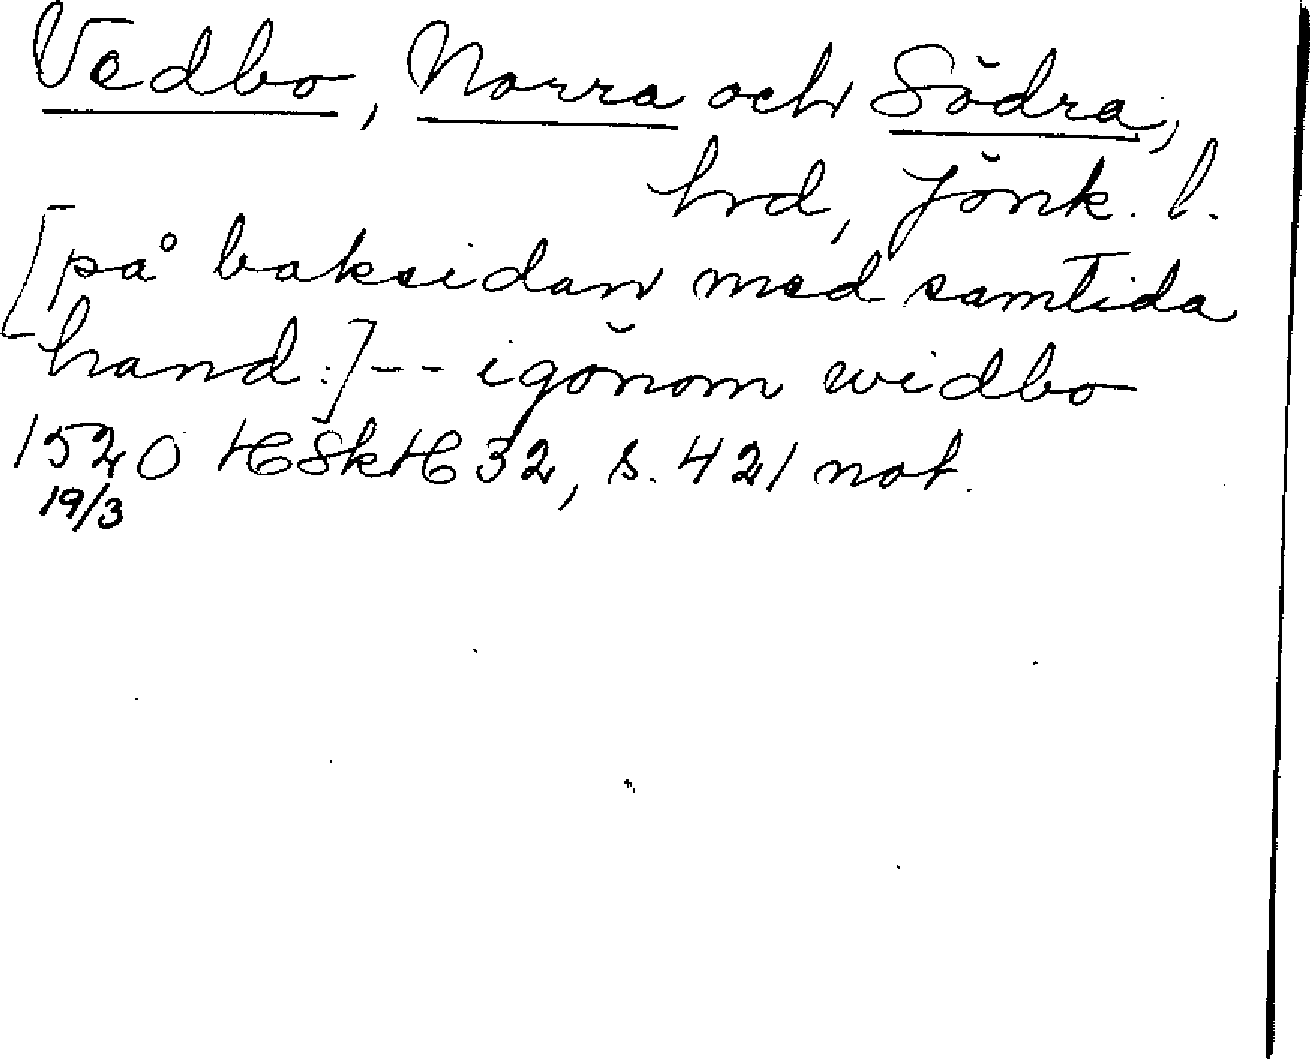 Vedbo, Norra och Södra,
hrd, Jönk. l.
[på baksidan med samtida
hand:]-- igönom widbo
1520 HSkH 32, s. 421 not.
19/3